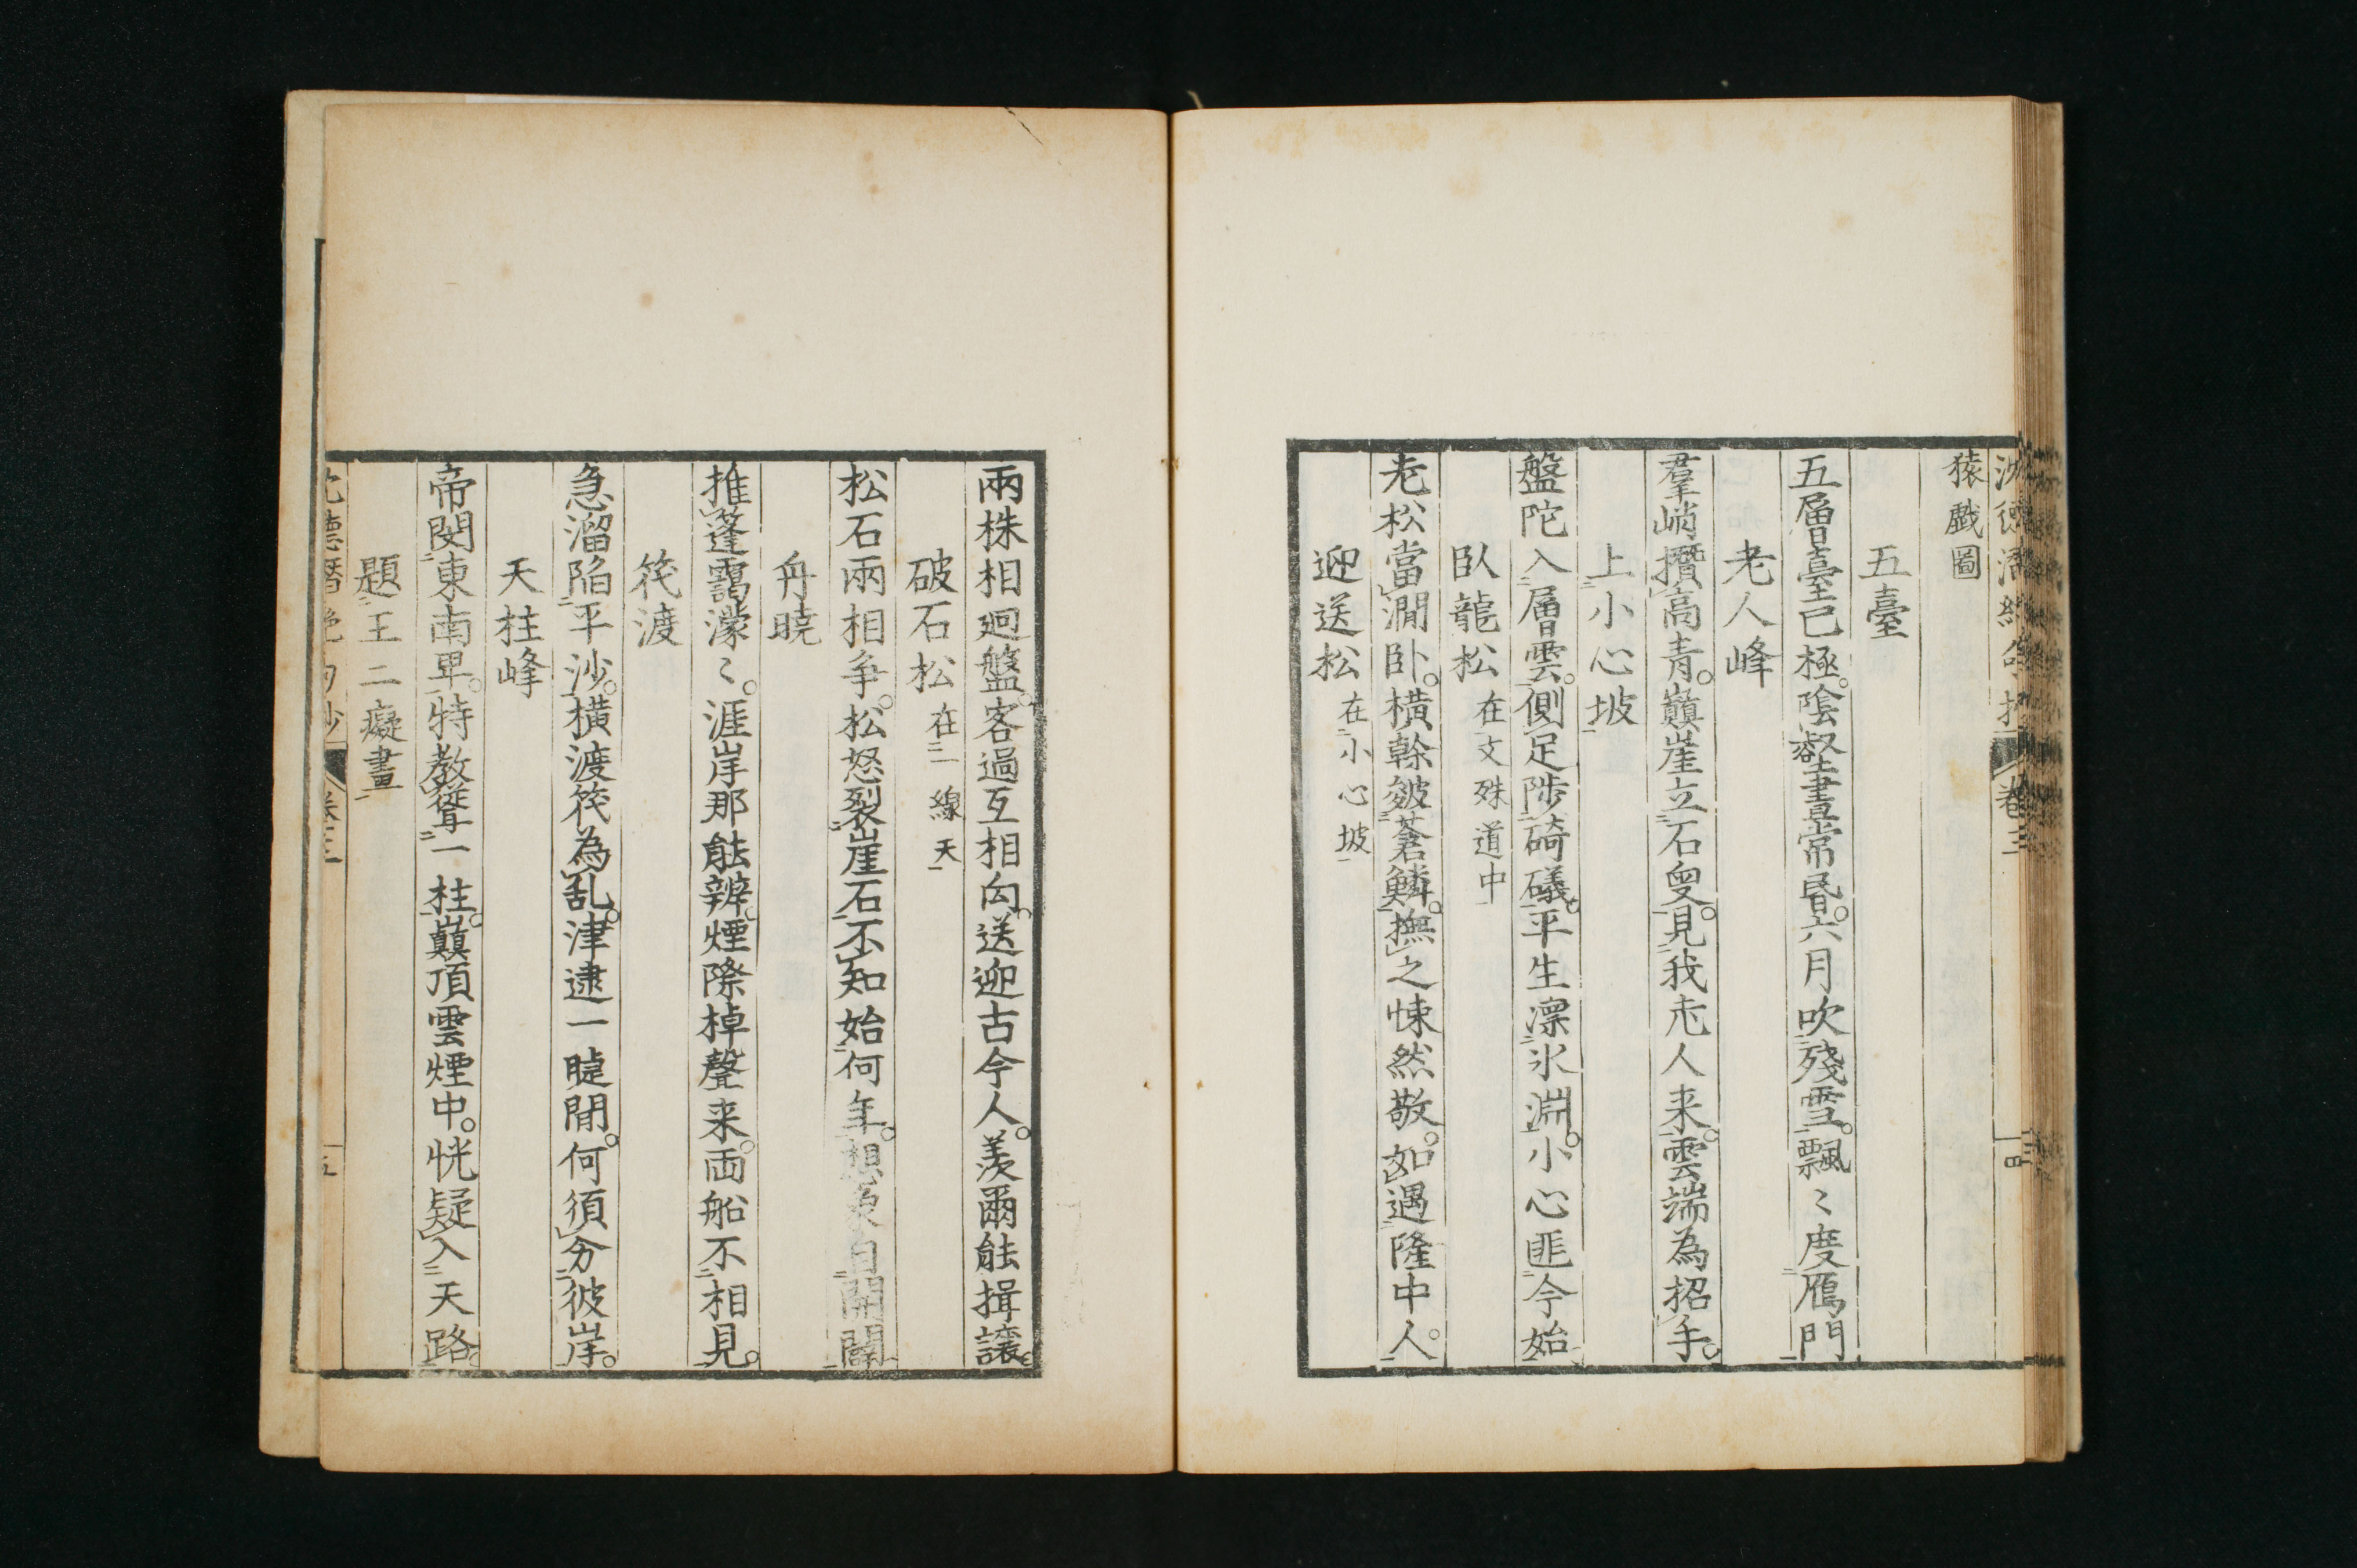 猿戲圖
五臺
五層臺已極。陰壑晝常昏。六月吹殘雪。飄〻度鴈門
老人峰
羣峭攢高青。巔崖立石叟。見我老人来。雲端為招手。
上小心坡
盤陀入層雲。側足陟碕礒。平生凛氷淵。小心匪今始
臥龍松 在文殊道中
老松當澗卧。橫幹皴蒼鱗。撫之悚然敬。如遇隆中人。
迎送松 在小心坡
兩株相迴盤。客過互相向。送迎古今人。羨爾能揖讓。
破石松 在一線天
松石兩相争。松怒裂崖石。不知始何年。想象自開闢
舟曉
推篷靄濛〻。涯岸那能辨。煙際棹聲来。両船不相見。
筏渡
急溜陷平沙。橫渡筏為乱。津逮一䀹間。何須分彼岸。
天柱峰
帝閔東南卑。特教聳一柱。巔頂雲煙中。恍疑入天路。
題王二癡畫
卷三
五